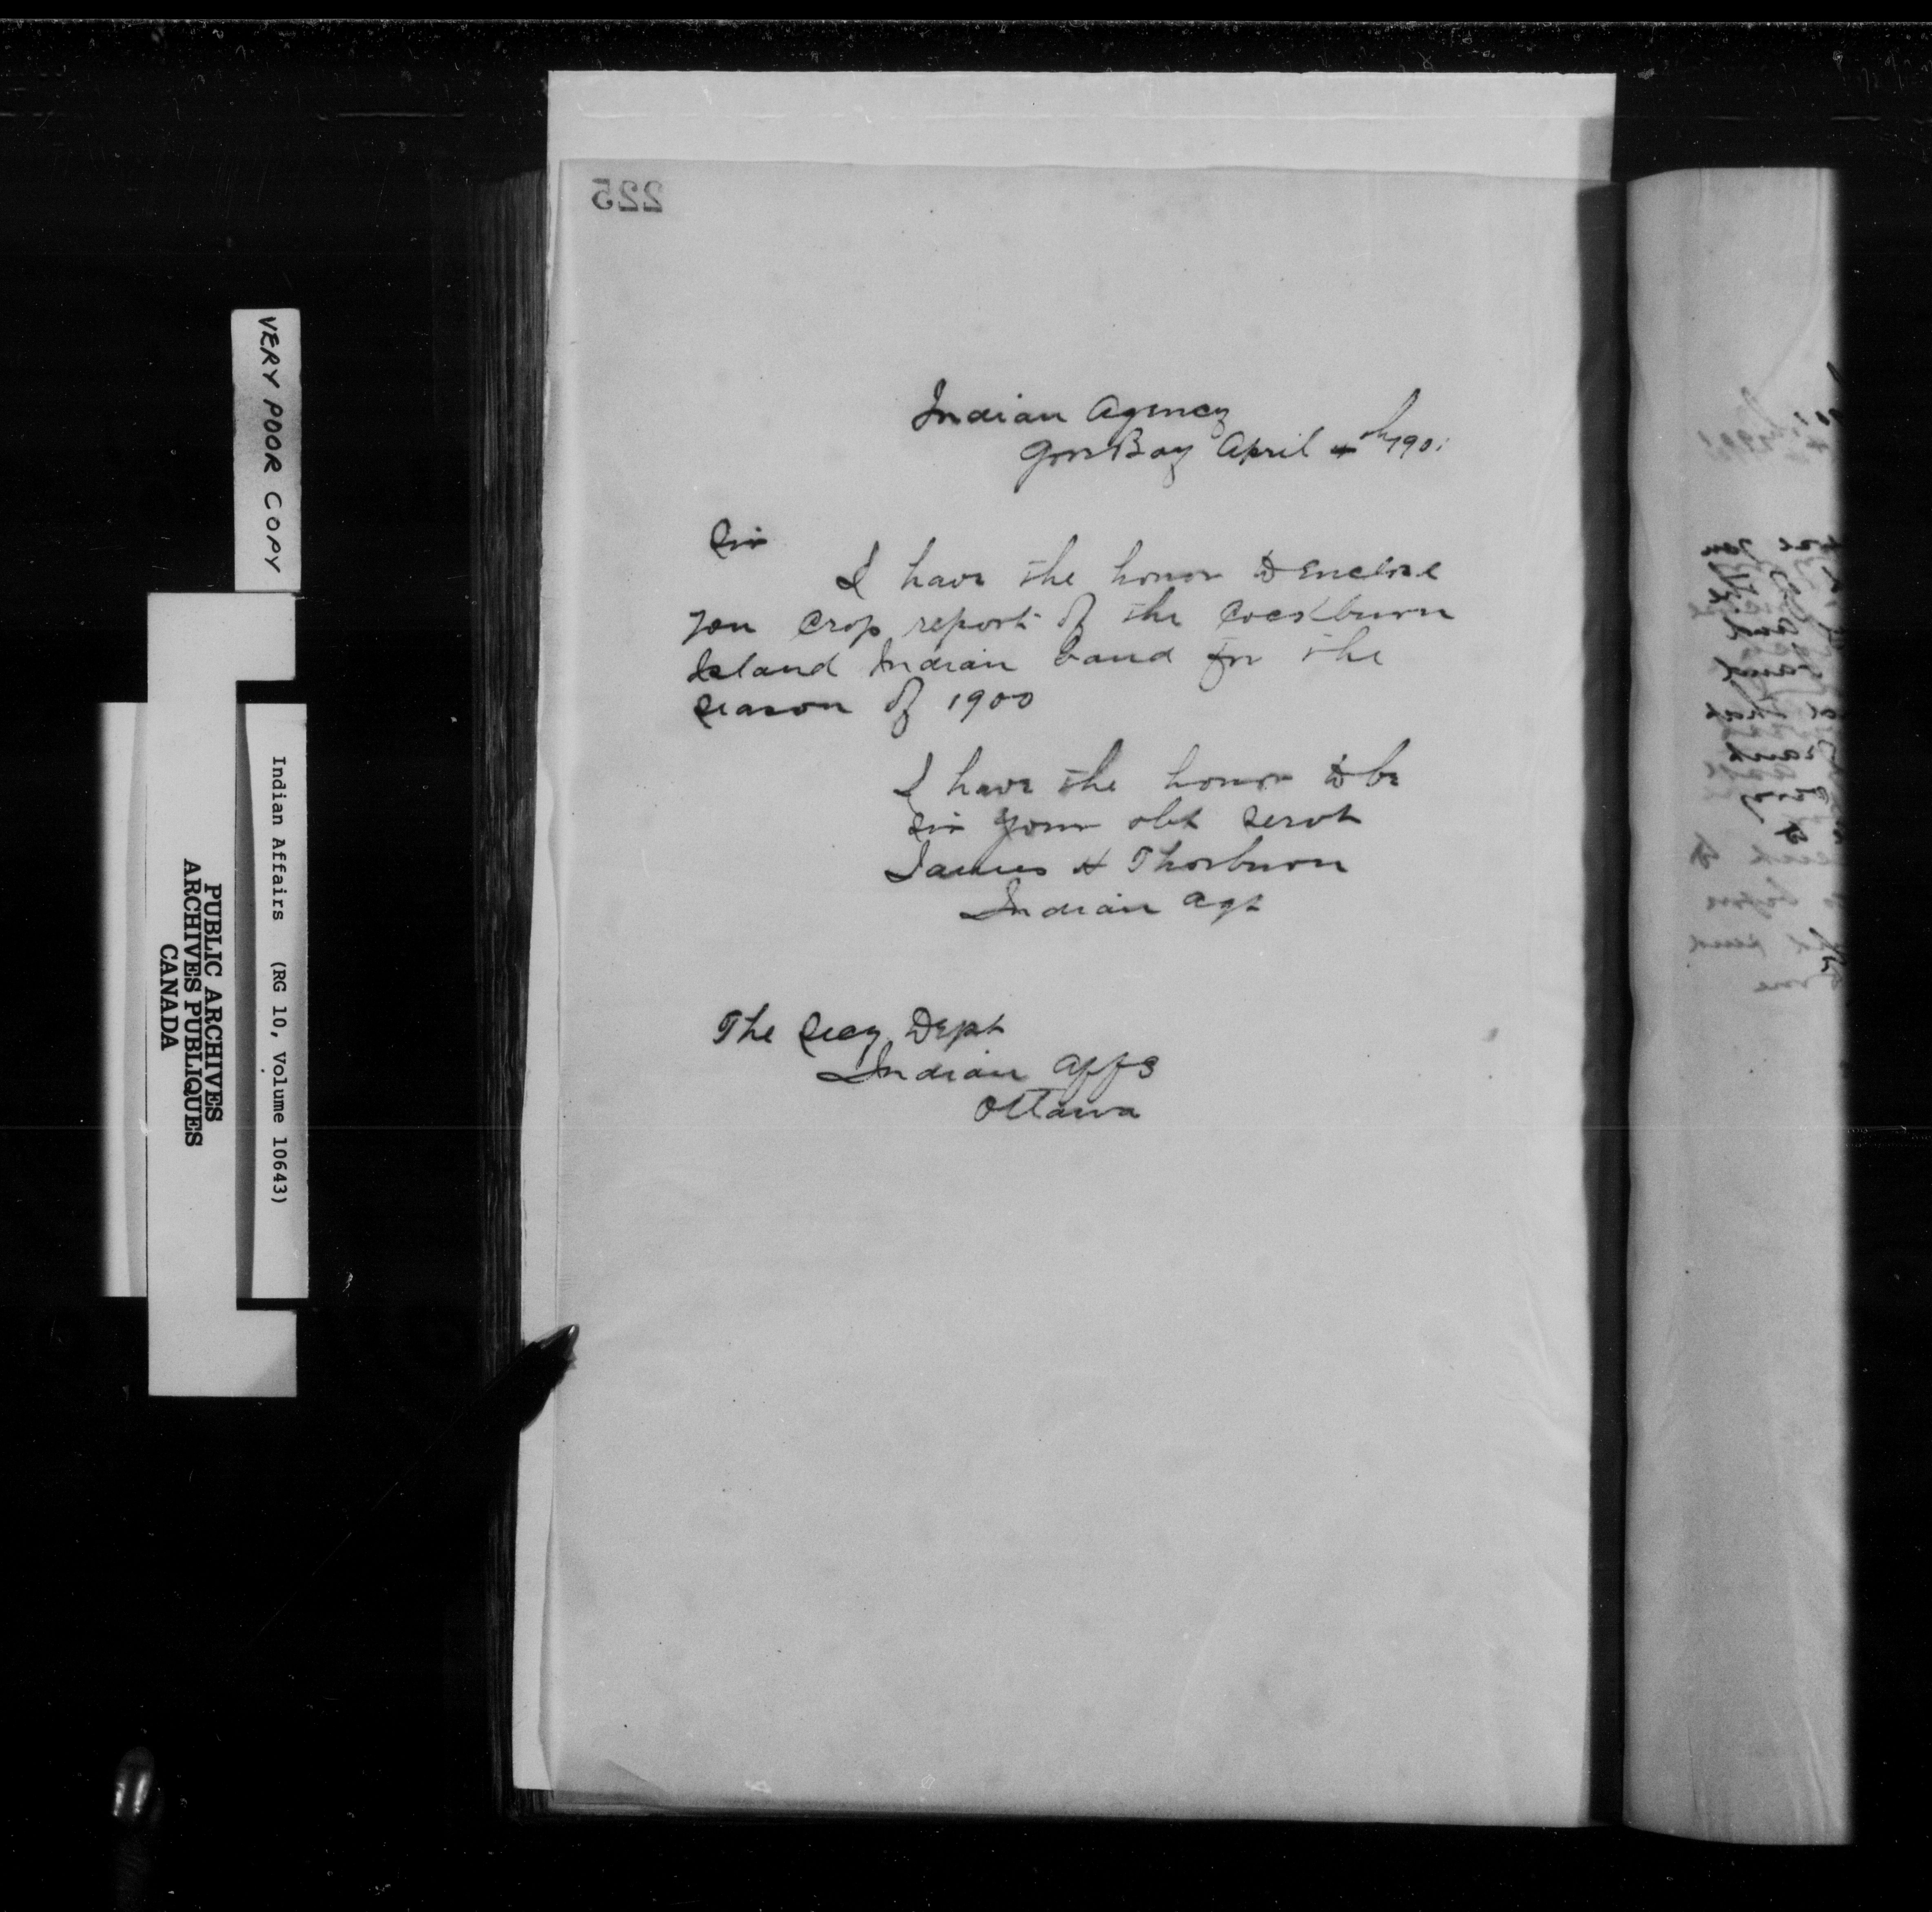 225
Indian Agency
Gore Bay April 4th 1901
Sir
I have the honor to enclose
you crop report of the Cockburn
Island Indian band for the
season of 1900
I have the honor to be
Sir your obt servt
James H Thorburn
Indian Agt
The Secy Dept
Indian Affs
Ottawa
VERY POOR COPY
Indian Affairs (RG 10, Volume 10643)
PUBLIC ARCHIVES
ARCHIVES PUBLIQUES
CANADA